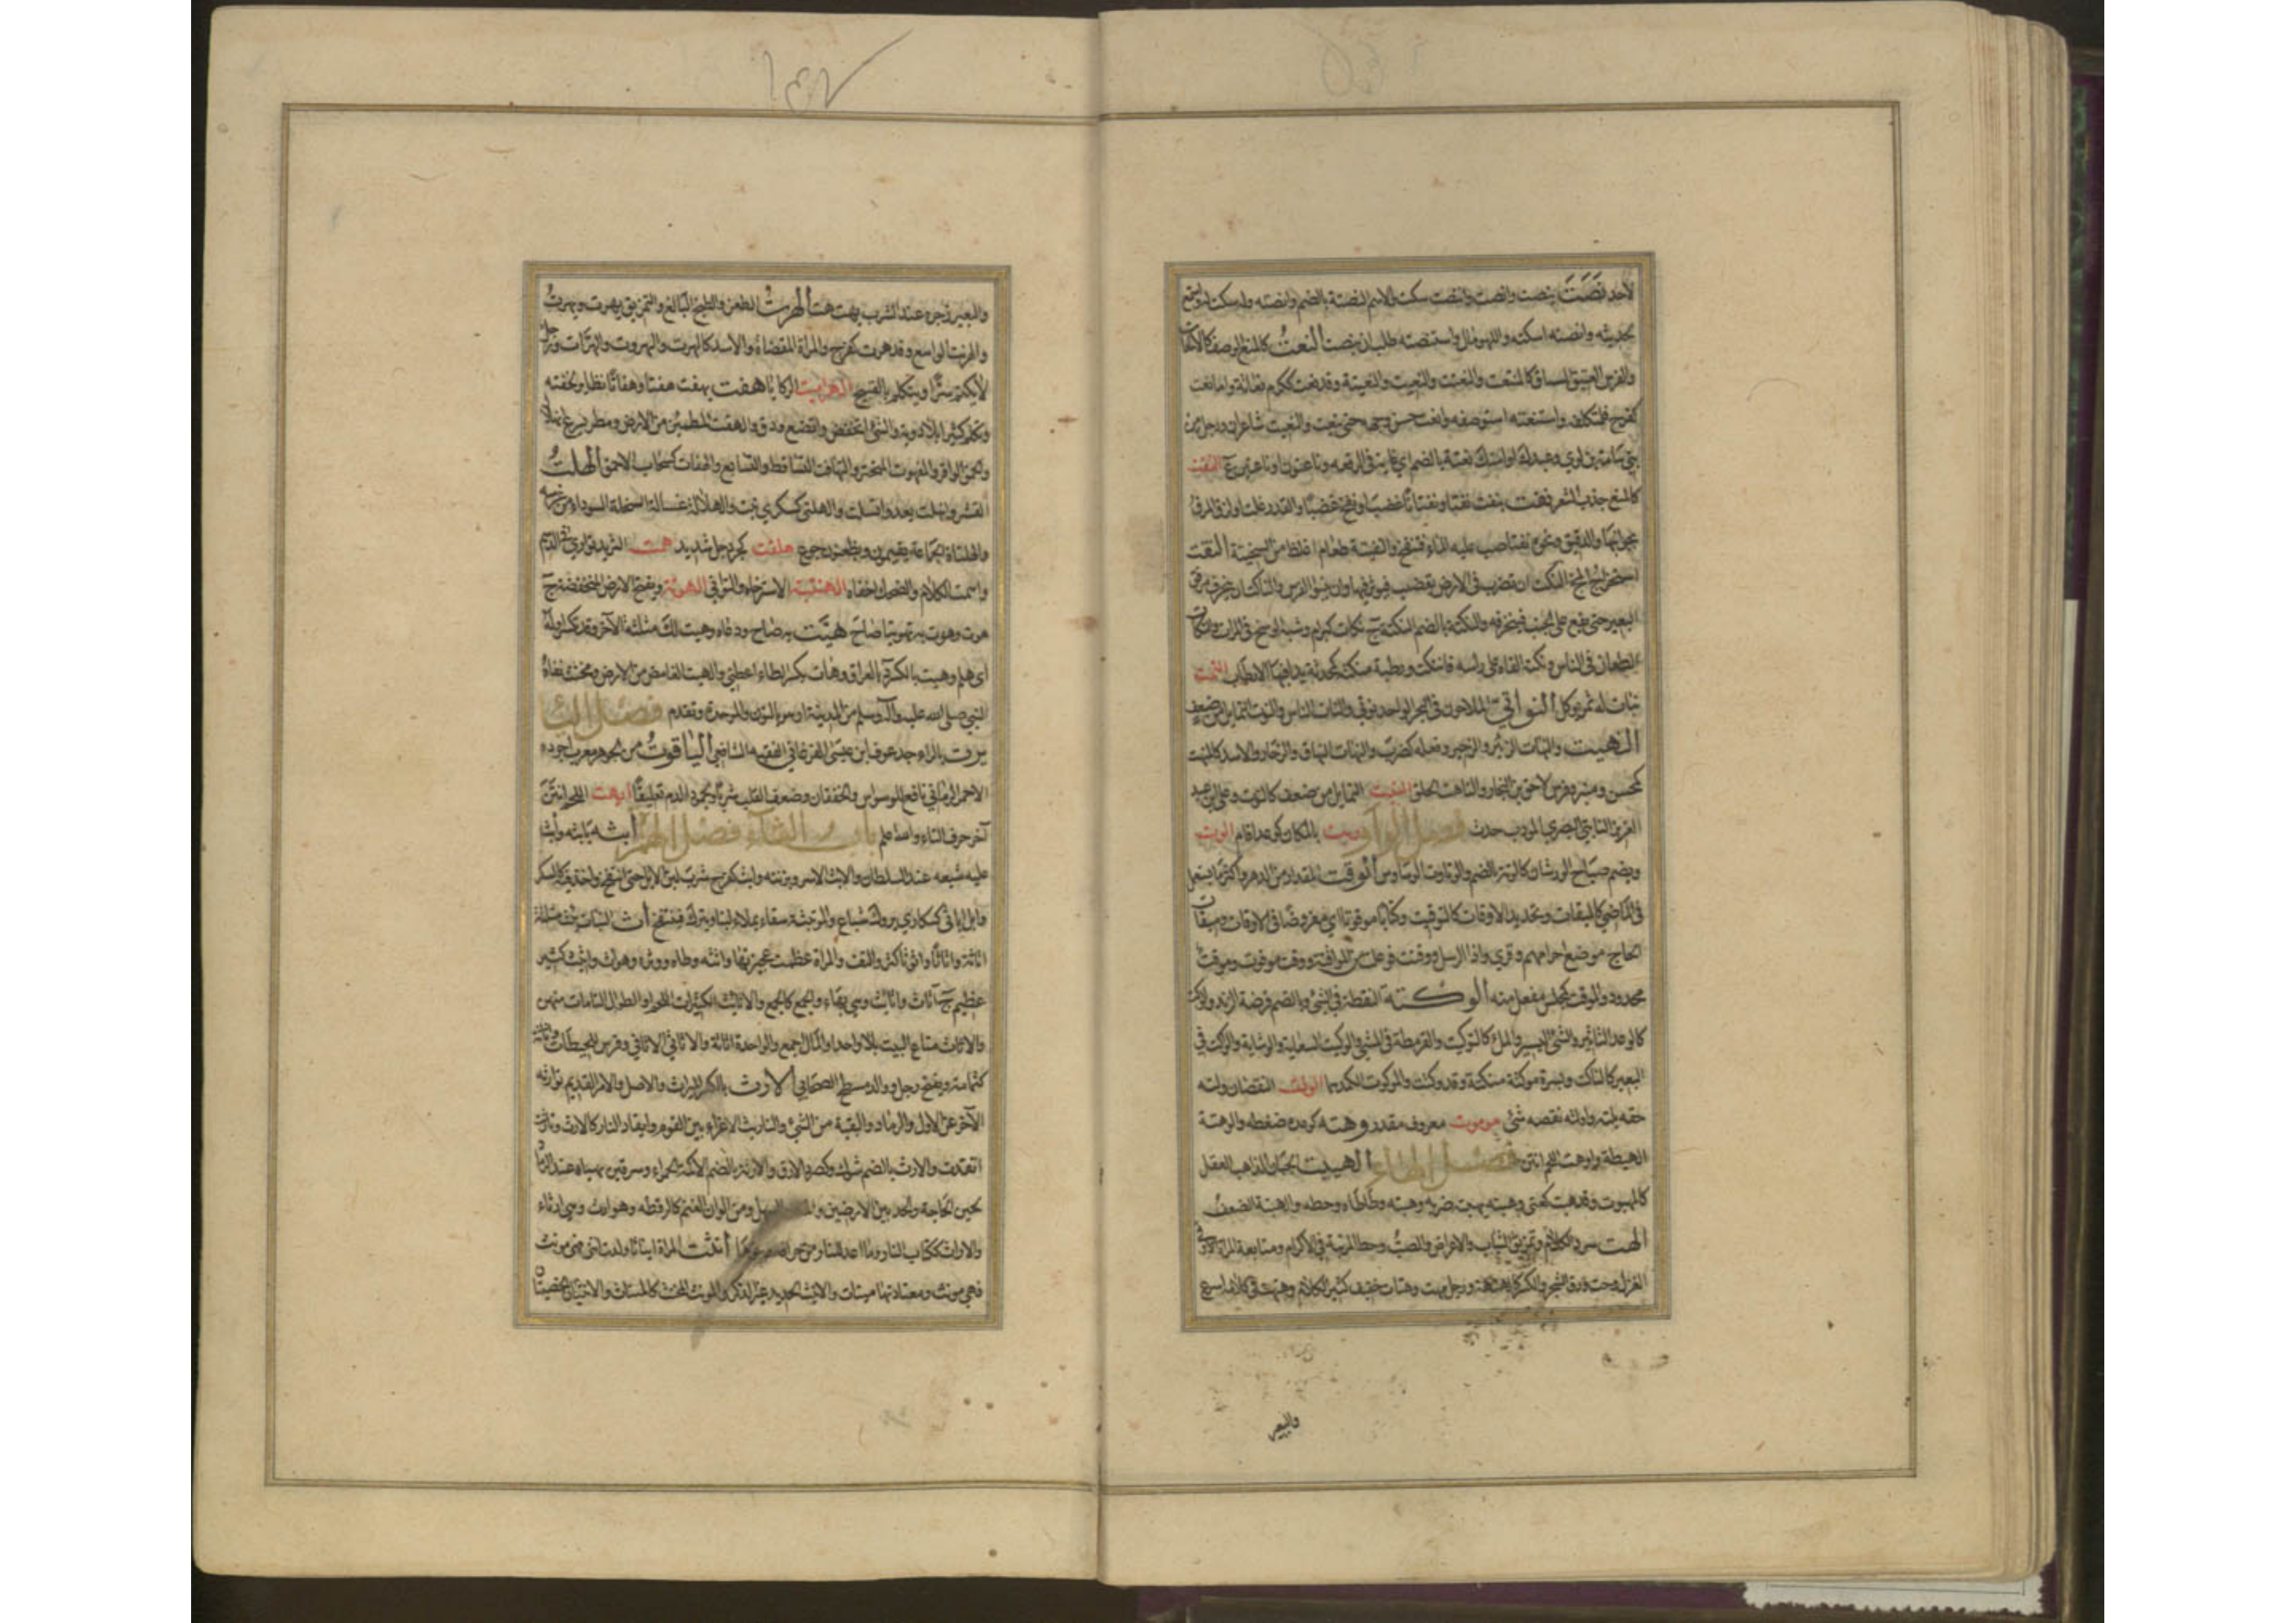 لأحد نَصَتَ ينصت وانصت وانتصت سكت والاسم النصتة بالضم وانصته وله سكت له واستمع
لحديثه وانصته اسكته واللهو مال واستنصته طلب ان ينصت النعتُ كالمنع الوصف كالانتعات
والفرس العتيق السباق كالمنتعت والنعتة والنعيت والنعيتة وقد نعت ككرم نعاتة واما نعت
كفرح فلمتكلفه واستنعته استوصفه وانعت حسن وجهه حتى ينعت والنعيت شاعران ورجل من
بني سامة بن لوي وعبدك او امتك نعتة بالضم اي غاية في الرفعه وناعتون او ناعتين ع النغت
كالمنع جذب الشعر نفتت ينفت نفتا ونفتانا غضب او نفخ غضبا والقدر غلت او لزق المرق
بجوانبها والدقيق ونحوه نفتا صب عليه الماء فتنفخ والنفيتة طعام اغلظ من السخينة النقت
استخراج المخ النكت ان تضرب في الارض بقضيب فيؤثر فيها وان ينبو الفرس والناكت ان يحز مرفق
البعير حتى يقع على الجنب فيخرقه والنكتة بالضم النقطة ج نكات كبرام وشبه الوسخ في المرآة والنكات
الطعان في الناس ونكته القاه على رأسه فانتكت ورطبة منكتة كمحدثة بدا فيها الارطاب النمت
نبات له ثمر يؤكل النواتيّ الملاحون في البحر الواحد نوتي والنات الناس والنوت التمايل من ضعف
النهيت والنهات الزئير والزحير وفعله كضرب والنهات النهاق والزحار والاسد كالمنهت
كمحسن ومنبر وفرس لاحق بن النجار والناهت الحلق النيت التمايل من ضعف كالنوت وعلي بن عبد
العزيز النايتي البصري المؤدب حدث فصل الواو وبت بالمكان كوعد اقام الوت
ويضم صياح الورشان كالوتة بالضم والوتاوت الوساوس الوقت المقدار من الدهر واكثر ما يستعمل
في الماضي كالميقات وتحديد الاوقات كالتوقيت وكتابا موقوتا اي مفروضا في الاوقات وميقات
الحاج موضع احرامهم وقري واذا الرسل ووقتت فوعلت من المواقتة ووقت موقوت وموقت
محدود والموقت كمجلس مفعل منه الوكتة النقطة في الشئ وبالضم فرضة الزند والوكت
كالوعد التاثير والشئ اليسير والملء كالتوكيت والقرمطة في المشي والوكيت السعاية والوشاية والوكت في
البعير كالناكت وبسرة موكتة منكتة وقد وكتت والموكوت الكمد الولت النقصان ولته
حقه يلته واولته نقصه شئ موموت معروف مقدر وهته كوعده ضغطه والوهتة
الهبطة واوهت اللحم انتن فصل الهاء الهبيت الجبان الذاهب العقل
كالمهبوت وقد هبت كعني وهبته يهبته ضربه وهبته وطأطأه وحطه والهبتة الضعف
الهت سرد الكلام وتمزيق الثياب والاعراض والصبّ وحط المرتبة في الاكرام ومتابعة المرأة في
الغزل وحت ورق الشجر والكسر كالهتهتة ورجل مهت وهتات خفيف كثير الكلام وهتهت في كلامه اسرع
والبعير
والبعير زجره عند الشرب بهت هت الهرتُ الطعن والطبخ البالغ والتمزيق يهرت ويهرتُ
والهريت الواسع وقد هرت كفرح والمرأة المفضاة والاسد كالهرت والهروت والهرات ورجل
لا يكتم سرّا ويتكلم بالقبيح الهراميت الركايا هفت يهفت هفتا وهفاتا تطاير لخفته
وتكلم كثيرا بلا روية والشئ انخفض واتضع ودق والهفت المطمئن من الارض ومطر يسرع انهلاله
والحمق الوافر والمهفوت المتحير والتهافت التساقط والتتابع والهفات كسحاب الاحمق الهلت
القشر وانهلت يعدو انسلت والهلتى كسكرى نبت والهلاتة غسالة السخلة السوداء من غرسه
والهلتاة الجماعة يقيمون ويظعنون جوع هلقت كجردحل شديد همت الثريد تواري في الدسم
واهمت الكلام والضحك اخفاه الهنبتة الاسترخاء والتواني الهوتة ويفتح الارض المنخفضة ج
هوت وهوت به تهويتا صاح هيّت به صاح ودعاه وهيت لك مثلثة الآخر وقد تكسر اوله
اى هلم وهيت بالكسر د بالعراق وهات بكسر التاء اعطني والهيت الغامض من الارض ومخنث نفاه
النبي صلى الله عليه وآله وسلم من المدينة او هو بالنون والموحدة وتقدم فصل اليا
يرت بالراء جد عوف ابن عيسى الفرغاني الفقيه الشافعي الياقوتُ من الجوهر معرب اجوده
الاحمر الرماني نافع للوسواس والخفقان وضعف القلب شربا ولجمود الدم تعليقا ايهت اللحم انتن
آخر حرف التاء والله اعلم باب الثاء فصل الهمز أبثه يأبثه وأبث
عليه سبعه عند السلطان والابث الاسر وبزنته وابث كفرح شرب لبن الابل حتى انتفخ واخذ فيه كالسكر
وابل اباثى كسكارى بروك شباع والمؤبثة سقاء يملاء لبنا ويترك فينتفخ أث النبات يئث مثلثة
اثاثة واثاثا واثوثا كثر والتف والمرأة عظمت عجيزتها واثثه وطاه ووثره وهو اث واثيث كثير
عظيم ج اثاث واثائث وهي بهاء والجمع كالجمع والاثائث الكثيرات اللحم او الطوال التامات منهن
والاثاث متاع البيت بلا واحد او المال اجمع والواحدة اثاثة والاثاثي الاثافي وفرس للحبطات
كثمامة ويفتح رجل ووالد مسطح الصحابي الارث بالكسر الميراث والاصل والامر القديم توارثه
الآخر عن الاول والرماد والبقية من الشئ والتاريث الاغراء بين القوم وايقاد النار كالارث وتارثت
اتقدت والارث بالضم شوك وكصرد الارف والارثة بالضم الاكمة الحمراء وسرقين يهياء عند الرماد
لحين الحاجة والحد بين الارضين السهل ومن الوان الغنم كالرقطه وهو آرث وهي ارثاء
والاراث ككتاب النار وما اعد للنار من حراقه أنثت المرأة ايناثا ولدت انثى فهي مؤنث
فهي مؤنث ومعتادتها ميناث والانيث الحديد غير الذكر والمؤنث المخنث كالميناث والانثيان الخصيتان